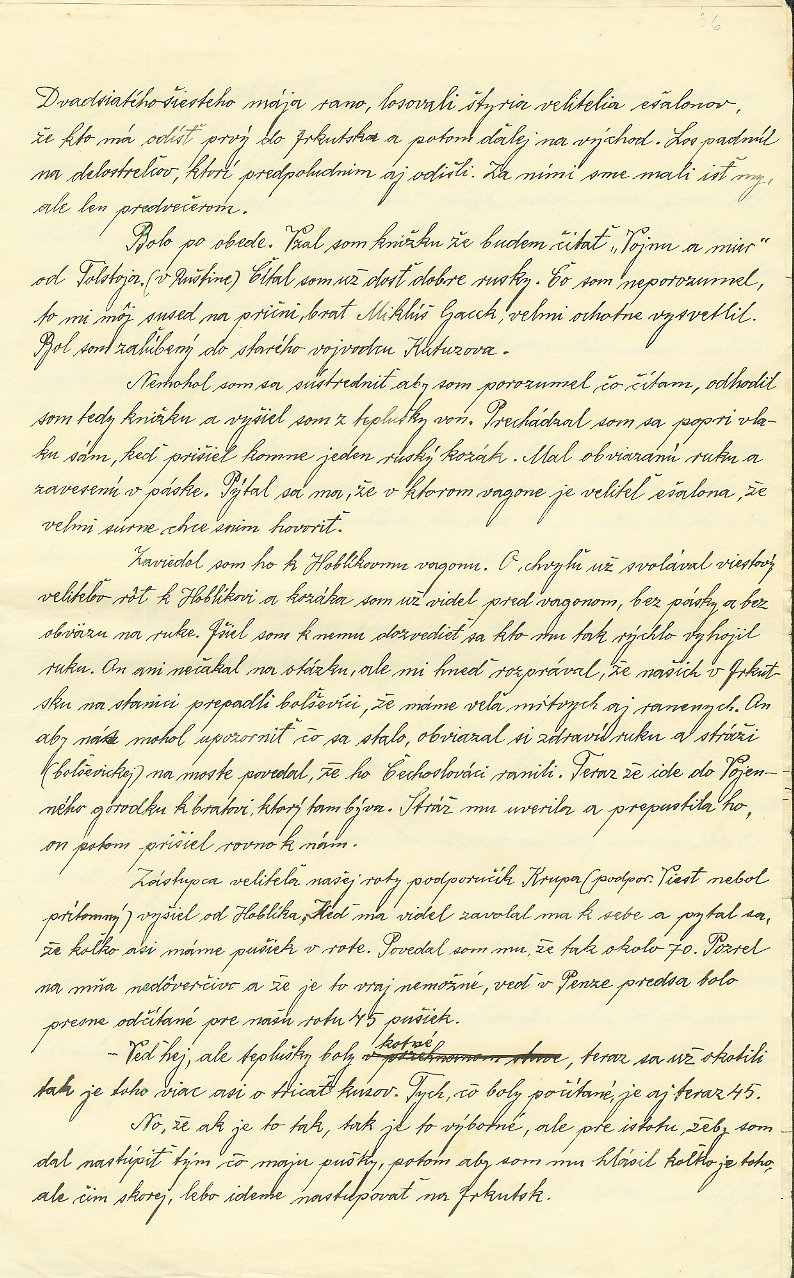 36
Dvadsiatého šiesteho mája rano, losovali štyria velitelia ešalonov,
že kto má odísť prvý do Irkutska a potom ďalej na východ. Los padnúl
na delostrelcov, ktorí predpoludnim aj odišli. Za nimi sme mali isť my,
ale len predvečerom.
Bolo po obede. Vzal som knižku že budem čítať „Vojnu a mier"
od Tolstoja. (v Ruštine) Čítal som už dosť dobre rusky. Čo som neporozumel,
to mi môj sused na prični, brat Mikláš Gacek, veľmi ochotne vysvetlil.
Bol som zaľúbený do starého vojvodcu Kutuzova.
Nemohol som sa sústredniť aby som porozumel čo čítam, odhodil
som tedy knižku a vyšiel som z teplušky von. Prechádzal som sa popri vla-
ku sám, keď prišiel komne jeden ruský kozák. Mal obviazanú ruku a
zavesenú v páske. Pýtal sa ma, že v ktorom vagone je veliteľ ešalona, že
veľmi súrne chce snim hovoriť.
Zaviedol som ho k Hoblíkovmu vagonu. O chvyľu už svolával viestový
veliteľov rôt k Hoblíkovi a kozáka som už videl pred vagonom, bez pásky a bez
obväzu na ruke. Išiel som k nemu dozvedieť sa kto mu tak rýchlo vyhojil
ruku. On ani nečakal na otázku, ale mi hneď rozprával, že našich v Irkut-
sku na stanici prepadli bolševíci, že máme veľa mŕtvych aj ranenych. On
aby nás mohol upozorniť čo sa stalo, obviazal si zdravú ruku a stráži
(bolševickej) na moste povedal, že ho Čechoslováci ranili. Teraz že ide do Vojen-
ného gorodku k bratovi, ktorý tam býva. Stráž mu uverila a prepustila ho,
on potom prišiel rovno k nám.
Zástupca veliteľa našej roty podporučík Krupa (podpor. Viest nebol
prítomný) vyšiel od Hoblíka. Keď ma videl zavolal ma k sebe a pytal sa,
že koľko asi máme pušiek v rote. Povedal som mu, že tak okolo 70. Pozrel
na mňa nedôverčive a že je to vraj nemožné, veď v Penze predsa bolo
presne odčítané pre našu rotu 45 pušiek.
- Veď hej, ale teplušky boly kotné, teraz sa už okotili
tak je toho viac asi o tricať kusov. Tych, čo boly počítané, je aj teraz 45.
No, že ak je to tak, tak je to výborné, ale pre istotu, žeby som
dal nastúpiť tým čo maju pušky, potom aby som mu hlásil koľko je toho,
ale čim skorej, lebo ideme nastupovať na Irkutsk.